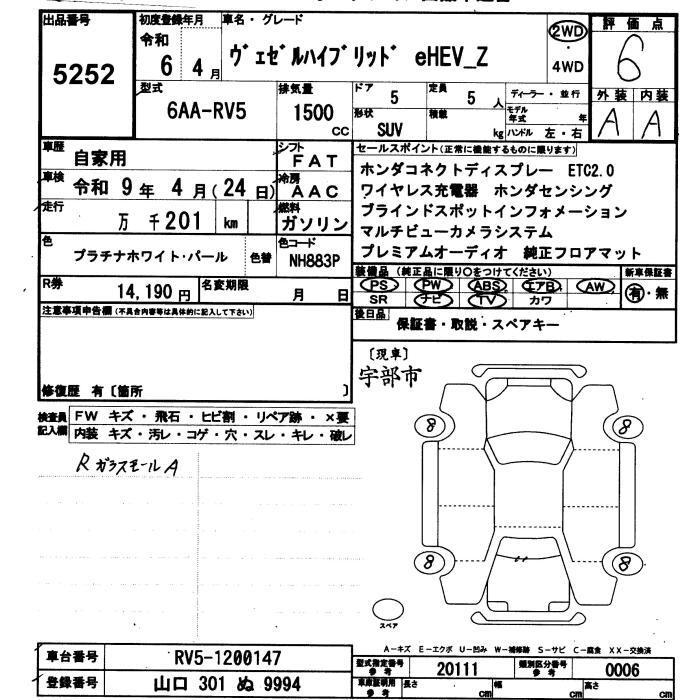 出品番号
5252
初度登録年月
令和
6 4月
車名・グレード
ヴェゼルハイブリッド eHEV_Z
2WD
・
4WD
評価点
6
外装 内装
A A
型式
6AA-RV5
排気量
1500
CC
ドア 5
定員 5 人
形状 SUV
積載 kg
ディーラー・並行
モデル年式 年
ハンドル 左・右
車歴 自家用
車検 令和 9年 4月(24日)
走行 万 千201 km
色 プラチナホワイト・パール 色替
シフト FAT
冷房 AAC
燃料 ガソリン
色コード NH883P
セールスポイント(正常に機能するものに限ります)
ホンダコネクトディスプレー ETC2.0
ワイヤレス充電器 ホンダセンシング
ブラインドスポットインフォメーション
マルチビューカメラシステム
プレミアムオーディオ 純正フロアマット
R券 14,190円
名変期限 月 日
装備品(純正品に限り○をつけてください) 新車保証書
PS PW ABS エアB AW 有・無
SR ナビ TV カワ
後日品 保証書・取説・スペアキー
注意事項申告欄(不具合内容等は具体的に記入して下さい)
修復歴 有〔箇所 〕
〔現車〕
宇部市
検査員記入欄
FW キズ・飛石・ヒビ割・リペア跡・×要
内装 キズ・汚レ・コゲ・穴・スレ・キレ・破レ
R ガラスモールA
8 8
8 8
スペア
A-キズ E-エクボ U-凹み W-補修跡 S-サビ C-腐食 XX-交換済
車台番号 RV5-1200147
登録番号 山口 301 ぬ 9994
型式指定番号 参考 20111
類別区分番号 参考 0006
車庫証明用 参考 長さ cm 幅 cm 高さ cm